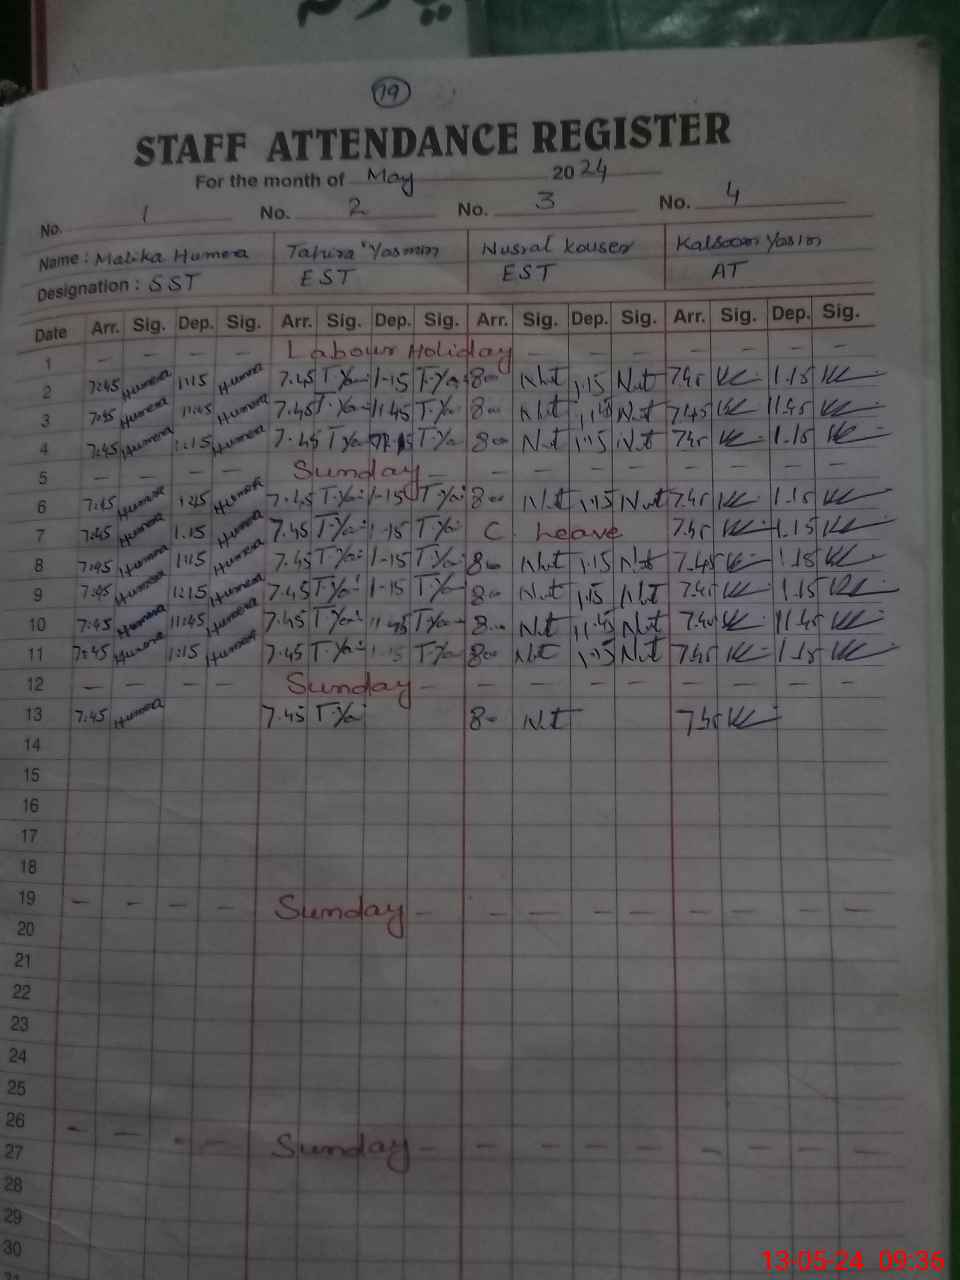 19
STAFF ATTENDANCE REGISTER
For the month of May 2024
No. 1 No. 2 No. 3 No. 4
Name : Malika Humera Tahira Yasmin Nusrat Kouser Kalsoom Yasin
Designation : SST EST EST AT
Date Arr. Sig. Dep. Sig. Arr. Sig. Dep. Sig. Arr. Sig. Dep. Sig. Arr. Sig. Dep. Sig.
1 — — — — Labour Holiday — — — — — — —
2 7:45 Humera 1:15 Humera 7.45 T.Ya 1-15 T.Ya 800 Nut 1:15 Nut 7.45 1.15
3 7:45 Humera 11:45 Humera 7.45 T.Ya 11:45 T.Ya 800 Nut 11:45 Nut 7.45 11.45
4 7:45 Humera 1:15 Humera 7.45 T.Ya T.Ya 800 Nut 1:15 Nut 7.45 1.15
5 — — — — Sunday — — — — — — — — —
6 7:45 Humera Humera 7.45 T.Ya 1-15 T.Ya 800 Nut 1:15 Nut 7.45 1.15
7 7:45 Humera 1.15 Humera 7.45 T.Ya 1-15 T.Ya C. Leave 7.45 1.15
8 7:45 Humera 1:15 Humera 7.45 T.Ya 1-15 T.Ya 800 Nut 1:15 Nut 7.45 1.15
9 7:45 Humera 1:15 Humera 7.45 T.Ya 1-15 T.Ya 800 Nut 1:15 Nut 7.45 1.15
10 7:45 Humera 11:45 Humera 7.45 T.Ya 11:45 T.Ya 800 Nut 11:45 Nut 7.45 11.45
11 7:45 Humera 1:15 Humera 7.45 T.Ya 1-15 T.Ya 800 Nut 1:15 Nut 7.45 1.15
12 — — — — Sunday — — — — — — — — —
13 7:45 Humera 7.45 T.Ya 800 Nut 7.45
14
15
16
17
18
19 — — — — Sunday — — — — — — — — —
20
21
22
23
24
25
26 — — — — Sunday — — — — — — — — —
27
28
29
30
13-05-24 09:36